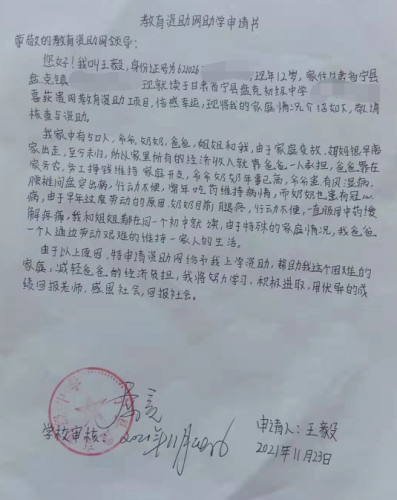 教育资助网助学申请书
尊敬的教育资助网领导:
您好!我叫王毅,身份证号为621026
盘克镇 ,现年12岁,家住甘肃省宁县
现就读于甘肃省宁县盘克初级中学
喜获贵网教育资助工项目,倍感幸运,现将我的家庭情况介绍如下,敬请
核查与资助。
我家中有5口人,爷爷,奶奶,爸爸,姐姐和我,由于家庭变故,妈妈很早离
家出走,至今未归,所以家里所有的经济收入就靠爸爸一人承担,爸爸靠在
家务农,务工挣钱维持家庭开支,爷爷奶奶年事已高,爷爷患有风湿病,
腰椎间盘突出病,行动不便,常年吃药维持病情,而奶奶也患有冠心
病,由于早年过度劳动的原因,奶奶目前腿疼,行动不便,一直服用中药缓
解疼痛,我和姐姐都在同一个初中就读,由于特殊的家庭情况,我爸爸
一个人通过劳动艰难的维持一家人的生活。
由于以上原因,特申请资助网给予我上学资助,帮助我这个困难的
家庭,减轻爸爸的经济负担,我将努力学习,积极进取,用优异的成
绩回报老师,感恩社会,回报社会。
学校审核: 2021年11月26
申请人:王毅
2021年11月23日